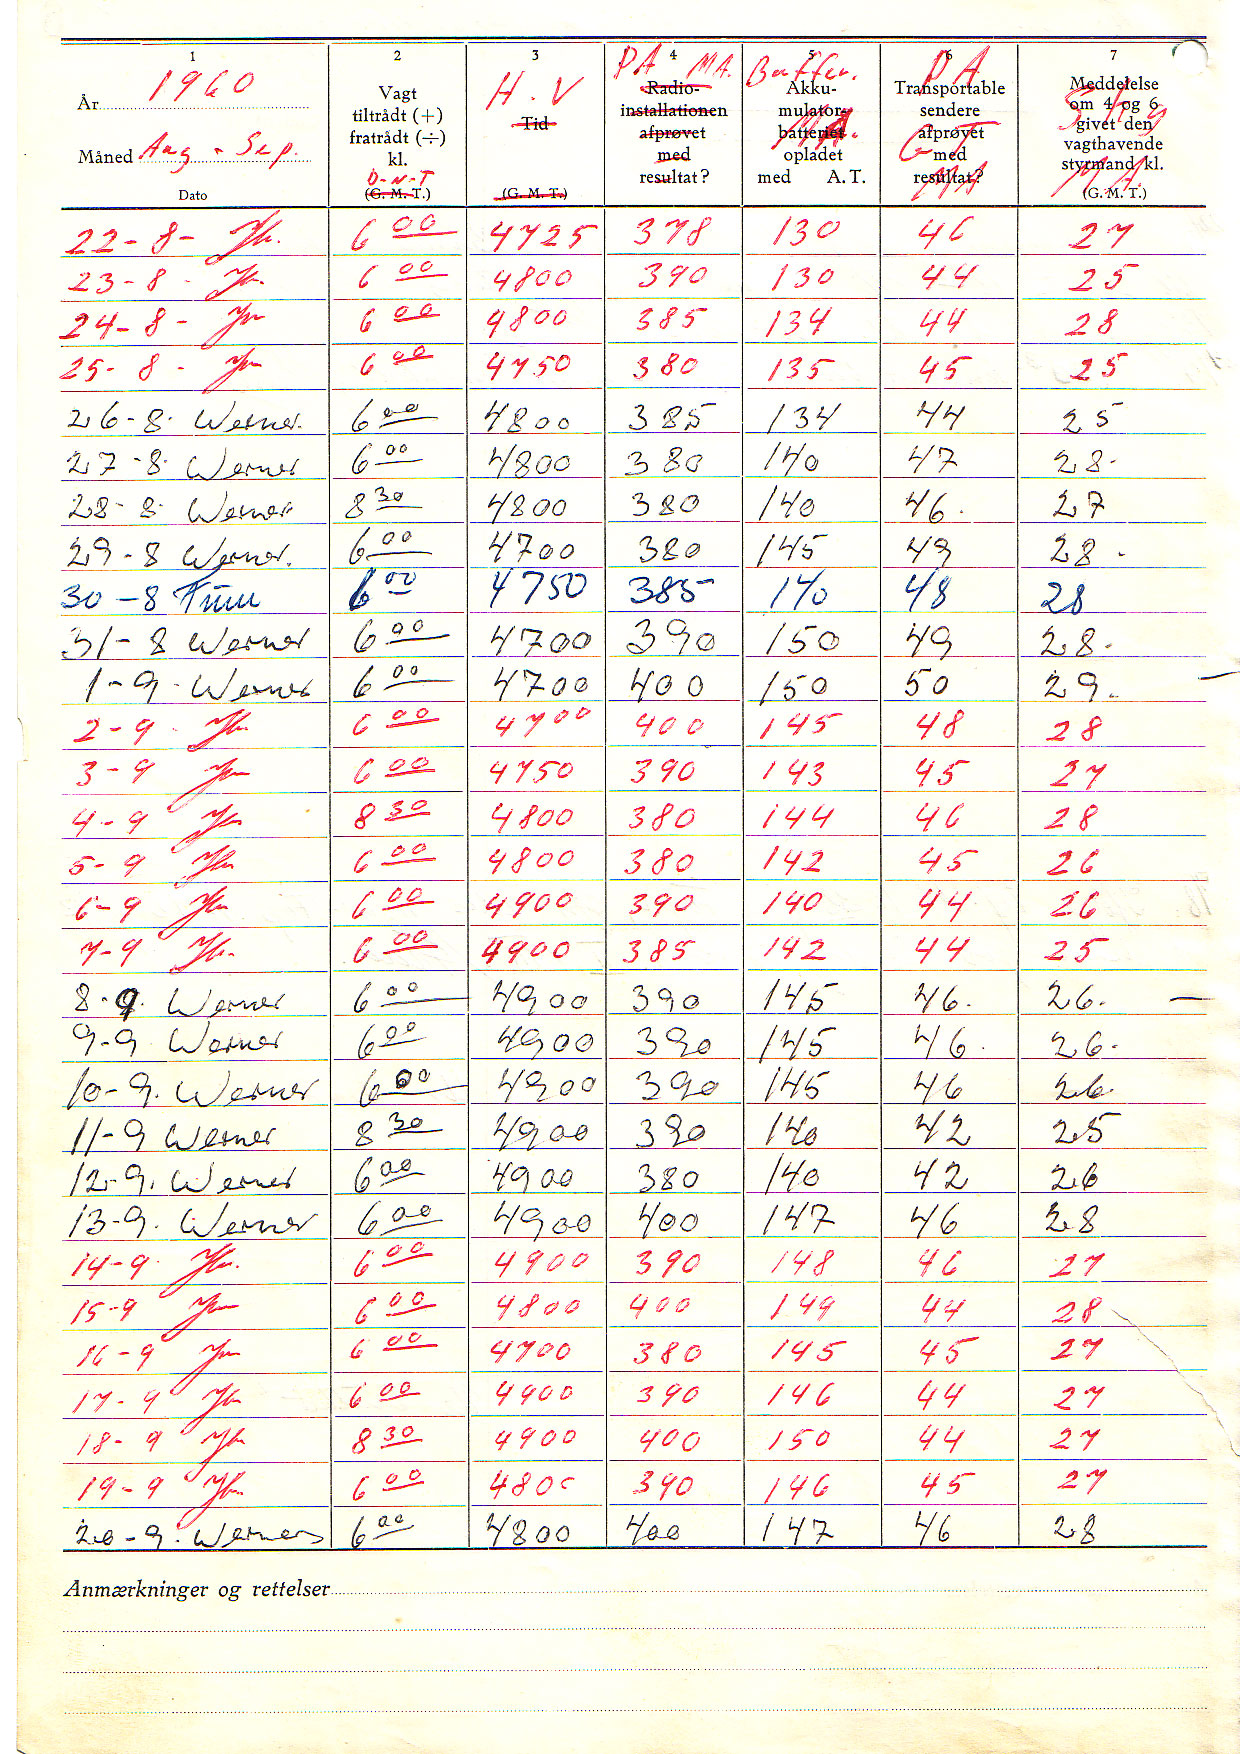 1 2 3 4 5 6 7
År 1960 Vagt tiltrådt (+) fratrådt (÷) kl. D-N-T (G. M. T.) H.V Tid (G. M. T.) PA MA. Radio-installationen afprøvet med resultat? Buffer. MA. Akku-mulator-batteriet opladet med A. T. PA GT MA Transportable sendere afprøvet med resultat? MA Meddelelse om 4 og 6 givet den vagthavende styrmand kl. (G. M. T.)
Måned Aug - Sep.
Dato
22-8- 6 00 4725 378 130 46 27
23-8- 6 00 4800 390 130 44 25
24-8- 6 00 4800 385 134 44 28
25-8- 6 00 4750 380 135 45 25
26-8. Werner. 6 00 4800 385 134 44 25
27-8. Werner 6 00 4800 380 140 47 28.
28-8. Werner 8 30 4800 380 140 46. 27
29-8 Werner. 6 00 4700 380 145 49 28.
30-8 6 00 4750 385 140 48 28
31-8 Werner 6 00 4700 390 150 49 28.
1-9. Werner 6 00 4700 400 150 50 29.
2-9. 6 00 4700 400 145 48 28
3-9 6 00 4750 390 143 45 27
4-9 8 30 4800 380 144 46 28
5-9 6 00 4800 380 142 45 26
6-9 6 00 4900 390 140 44 26
7-9 6 00 4900 385 142 44 25
8-9. Werner 6 00 4900 390 145 46. 26.
9-9 Werner 6 00 4900 390 145 46. 26.
10-9. Werner 6 00 4900 390 145 46 26.
11-9 Werner 8 30 4900 390 140 42 25
12-9. Werner 6 00 4900 380 140 42 26
13-9. Werner 6 00 4900 400 147 46 28
14-9. 6 00 4900 390 148 46 27
15-9 6 00 4800 400 149 44 28
16-9 6 00 4700 380 145 45 27
17-9 6 00 4900 390 146 44 27
18-9 8 30 4900 400 150 44 27
19-9 6 00 4800 390 146 45 27
20-9. Werner 6 00 4800 400 147 46 28
Anmærkninger og rettelser